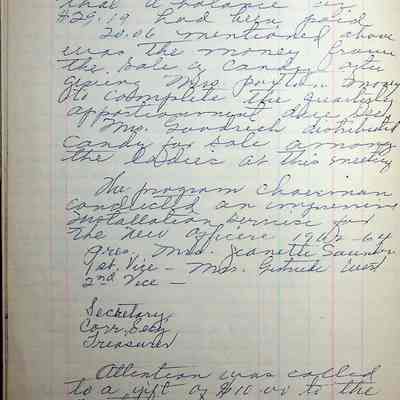 that a balance of
$29.19 had been paid
20.06 mentioned above
was the money from
the sale of candy after
giving Mrs Paxton money
to complete the quarterly
apportionment due
Mrs. Goodrich distributed
Candy for sale among
the ladies at this meeting
The program chairman
conducted an impressive
installation service for
the new officers 1962-64
Pres. Mrs. Jeanette Saunders
1st Vice - Mrs. Gertrude West
2nd Vice -
Secretary
Corr. Secy
Treasurer
Attention was called
to a gift of $10.00 to the